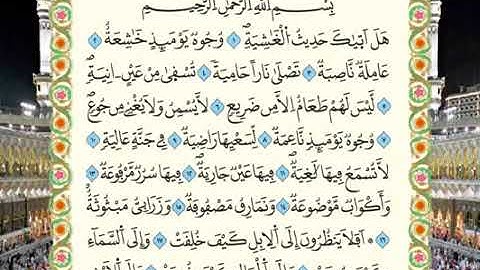 بِسْمِ اللَّهِ الرَّحْمَٰنِ الرَّحِيمِ
هَلَ اَتَىٰكَ حَدِيثُ الْغَٰشِيَةِ ١ وُجُوهٌ يَوْمَئِذٍ خَٰشِعَةٌ ٢
عَامِلَةٌ نَّاصِبَةٌ ٣ تَصْلَىٰ نَاراً حَامِيَةً ٤ تُسْقَىٰ مِنْ عَيْنٍ اٰنِيَةٍ
٥ لَّيْسَ لَهُمْ طَعَامٌ اِلَّا مِن ضَرِيعٍ ٦ لَّا يُسْمِنُ وَلَا يُغْنِے مِن جُوعٍ
٧ وُجُوهٌ يَوْمَئِذٍ نَّاعِمَةٌ ٨ لِّسَعْيِهَا رَاضِيَةٌ ٩ فِے جَنَّةٍ عَالِيَةٍ ١٠
لَّا تُسْمَعُ فِيهَا لَٰغِيَةٌ ١١ فِيهَا عَيْنٌ جَارِيَةٌ ١٢ فِيهَا سُرُرٌ مَّرْفُوعَةٌ ١٣
وَأَكْوَابٌ مَّوْضُوعَةٌ ١٤ وَنَمَارِقُ مَصْفُوفَةٌ ١٥ وَزَرَابِيُّ مَبْثُوثَةٌ
١٦ اَفَلَا يَنظُرُونَ إِلَى اَلِابِلِ كَيْفَ خُلِقَتْ ١٧ وَإِلَى اَلسَّمَآءِ